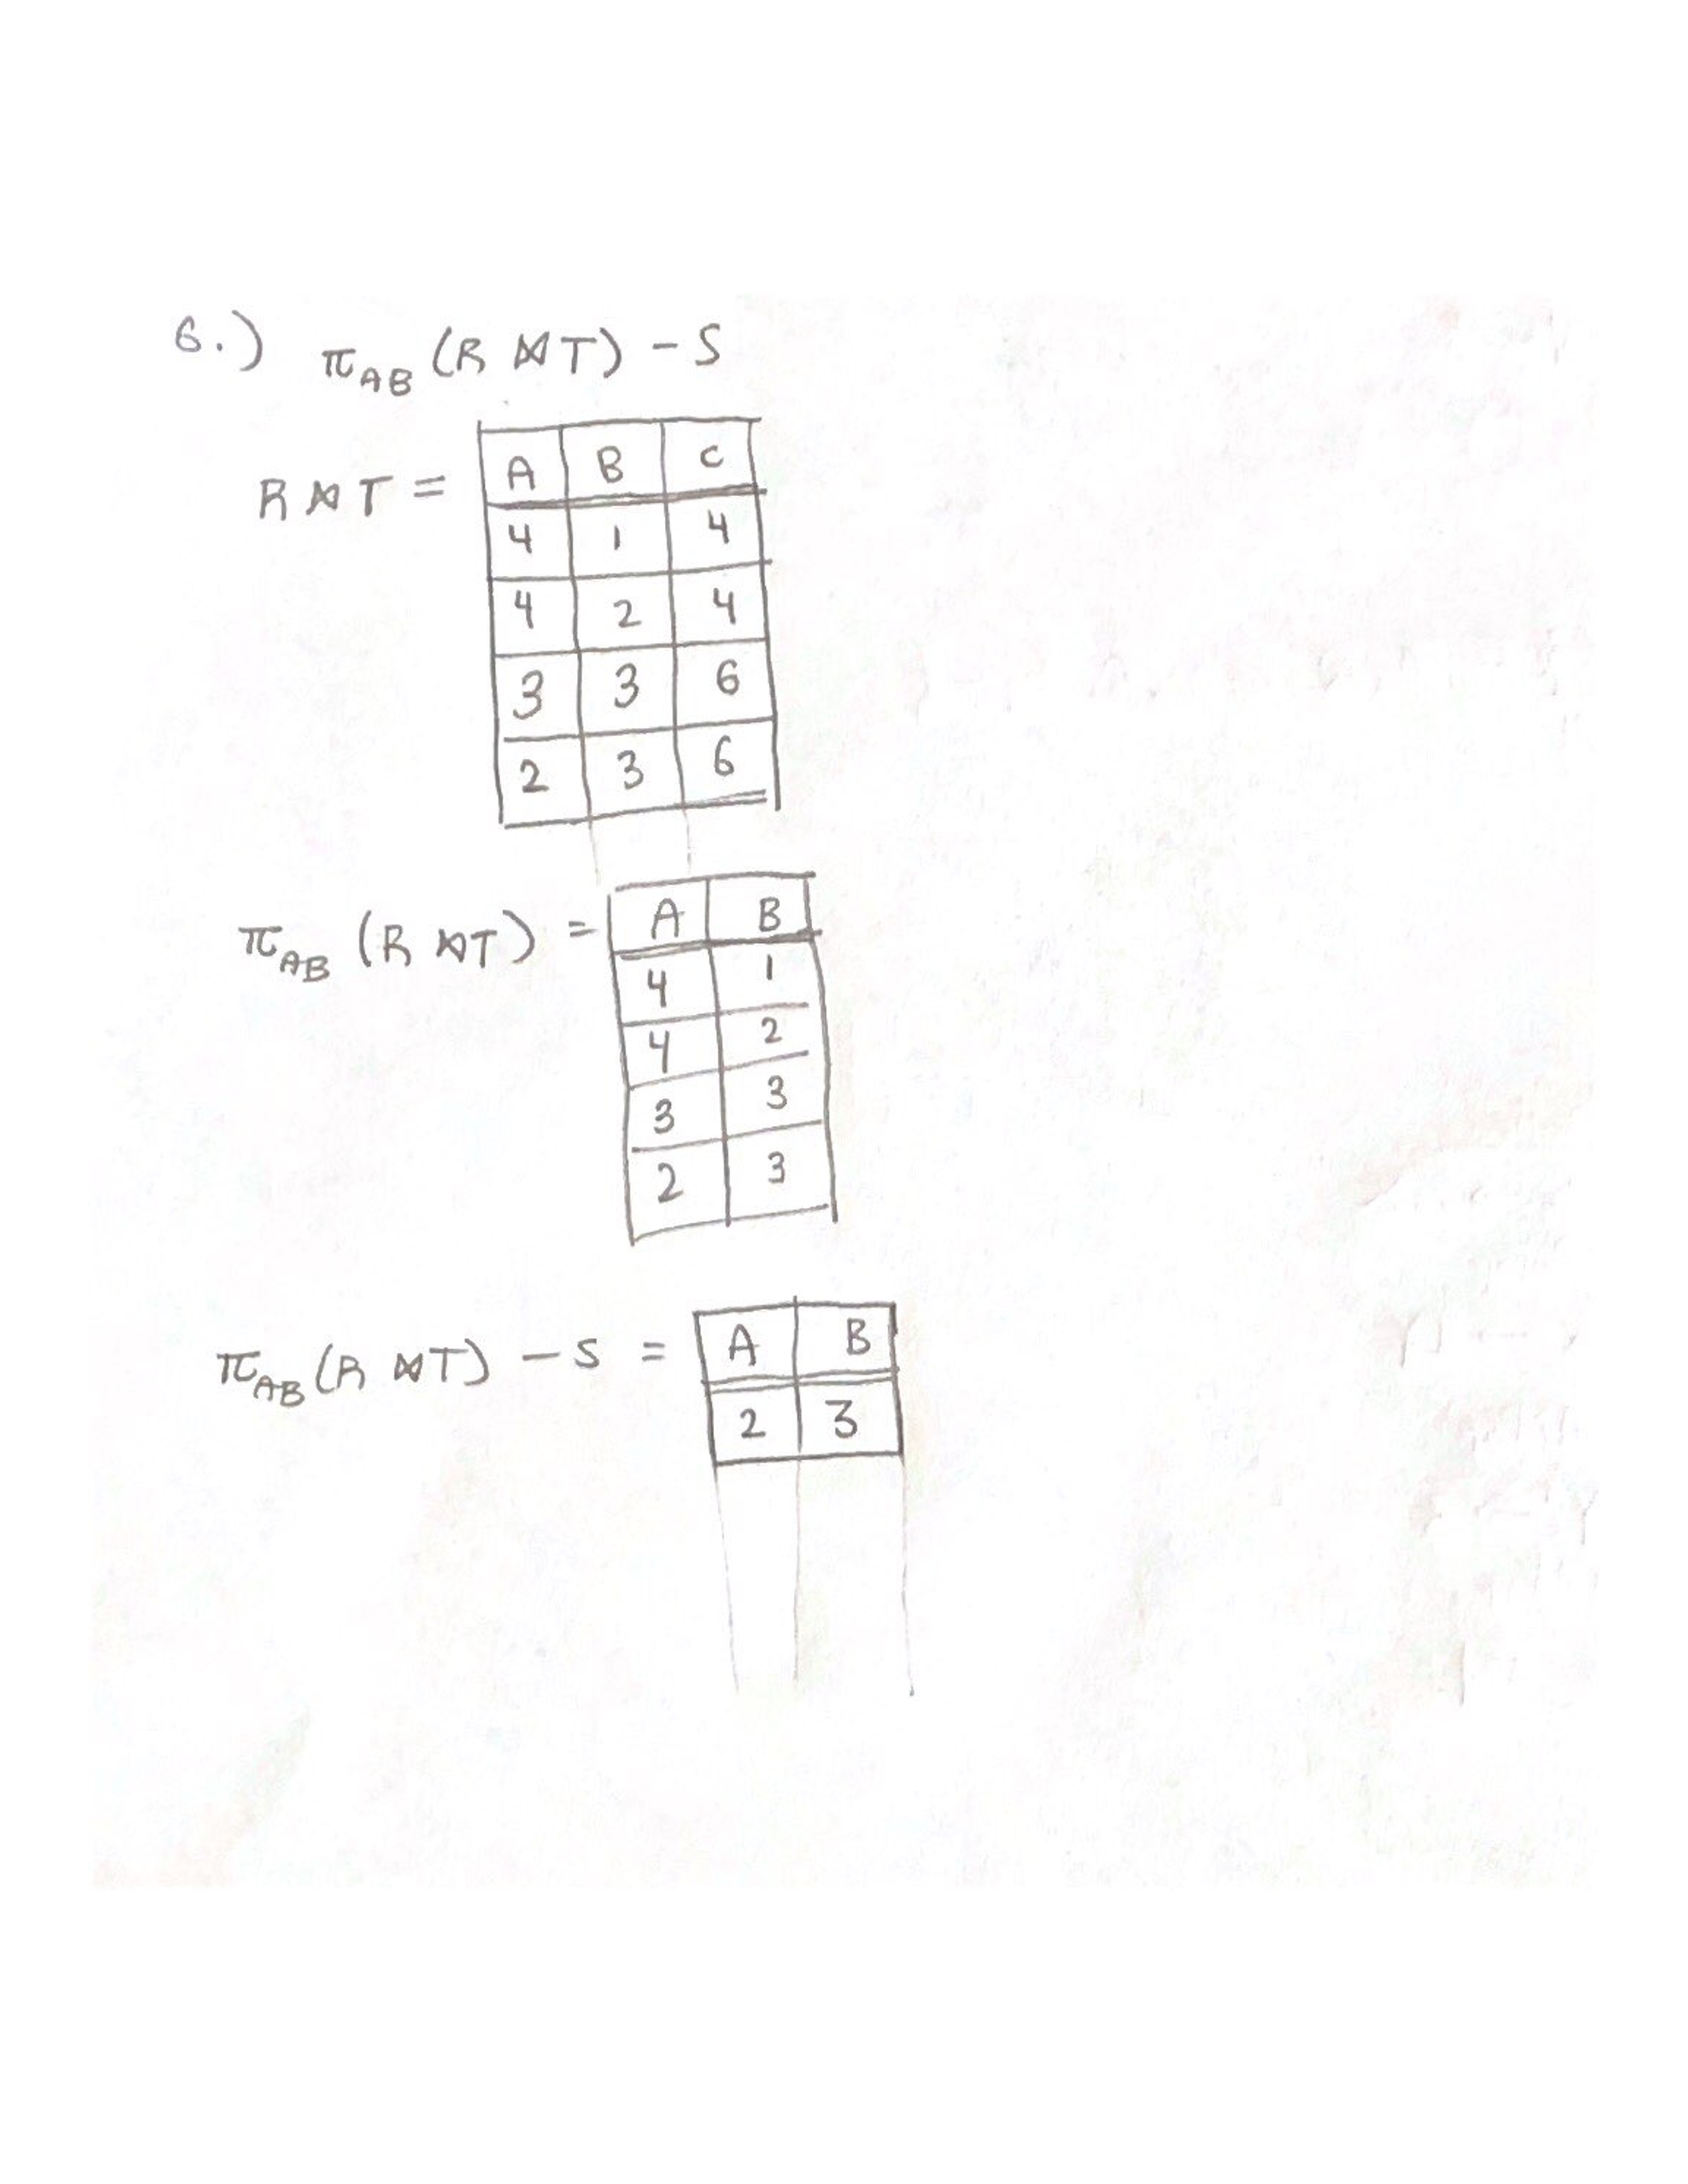 6.) π_AB (R ⋈ T) - S
R ⋈ T =
A B C
4 1 4
4 2 4
3 3 6
2 3 6
π_AB (R ⋈ T) =
A B
4 1
4 2
3 3
2 3
π_AB (R ⋈ T) - S =
A B
2 3